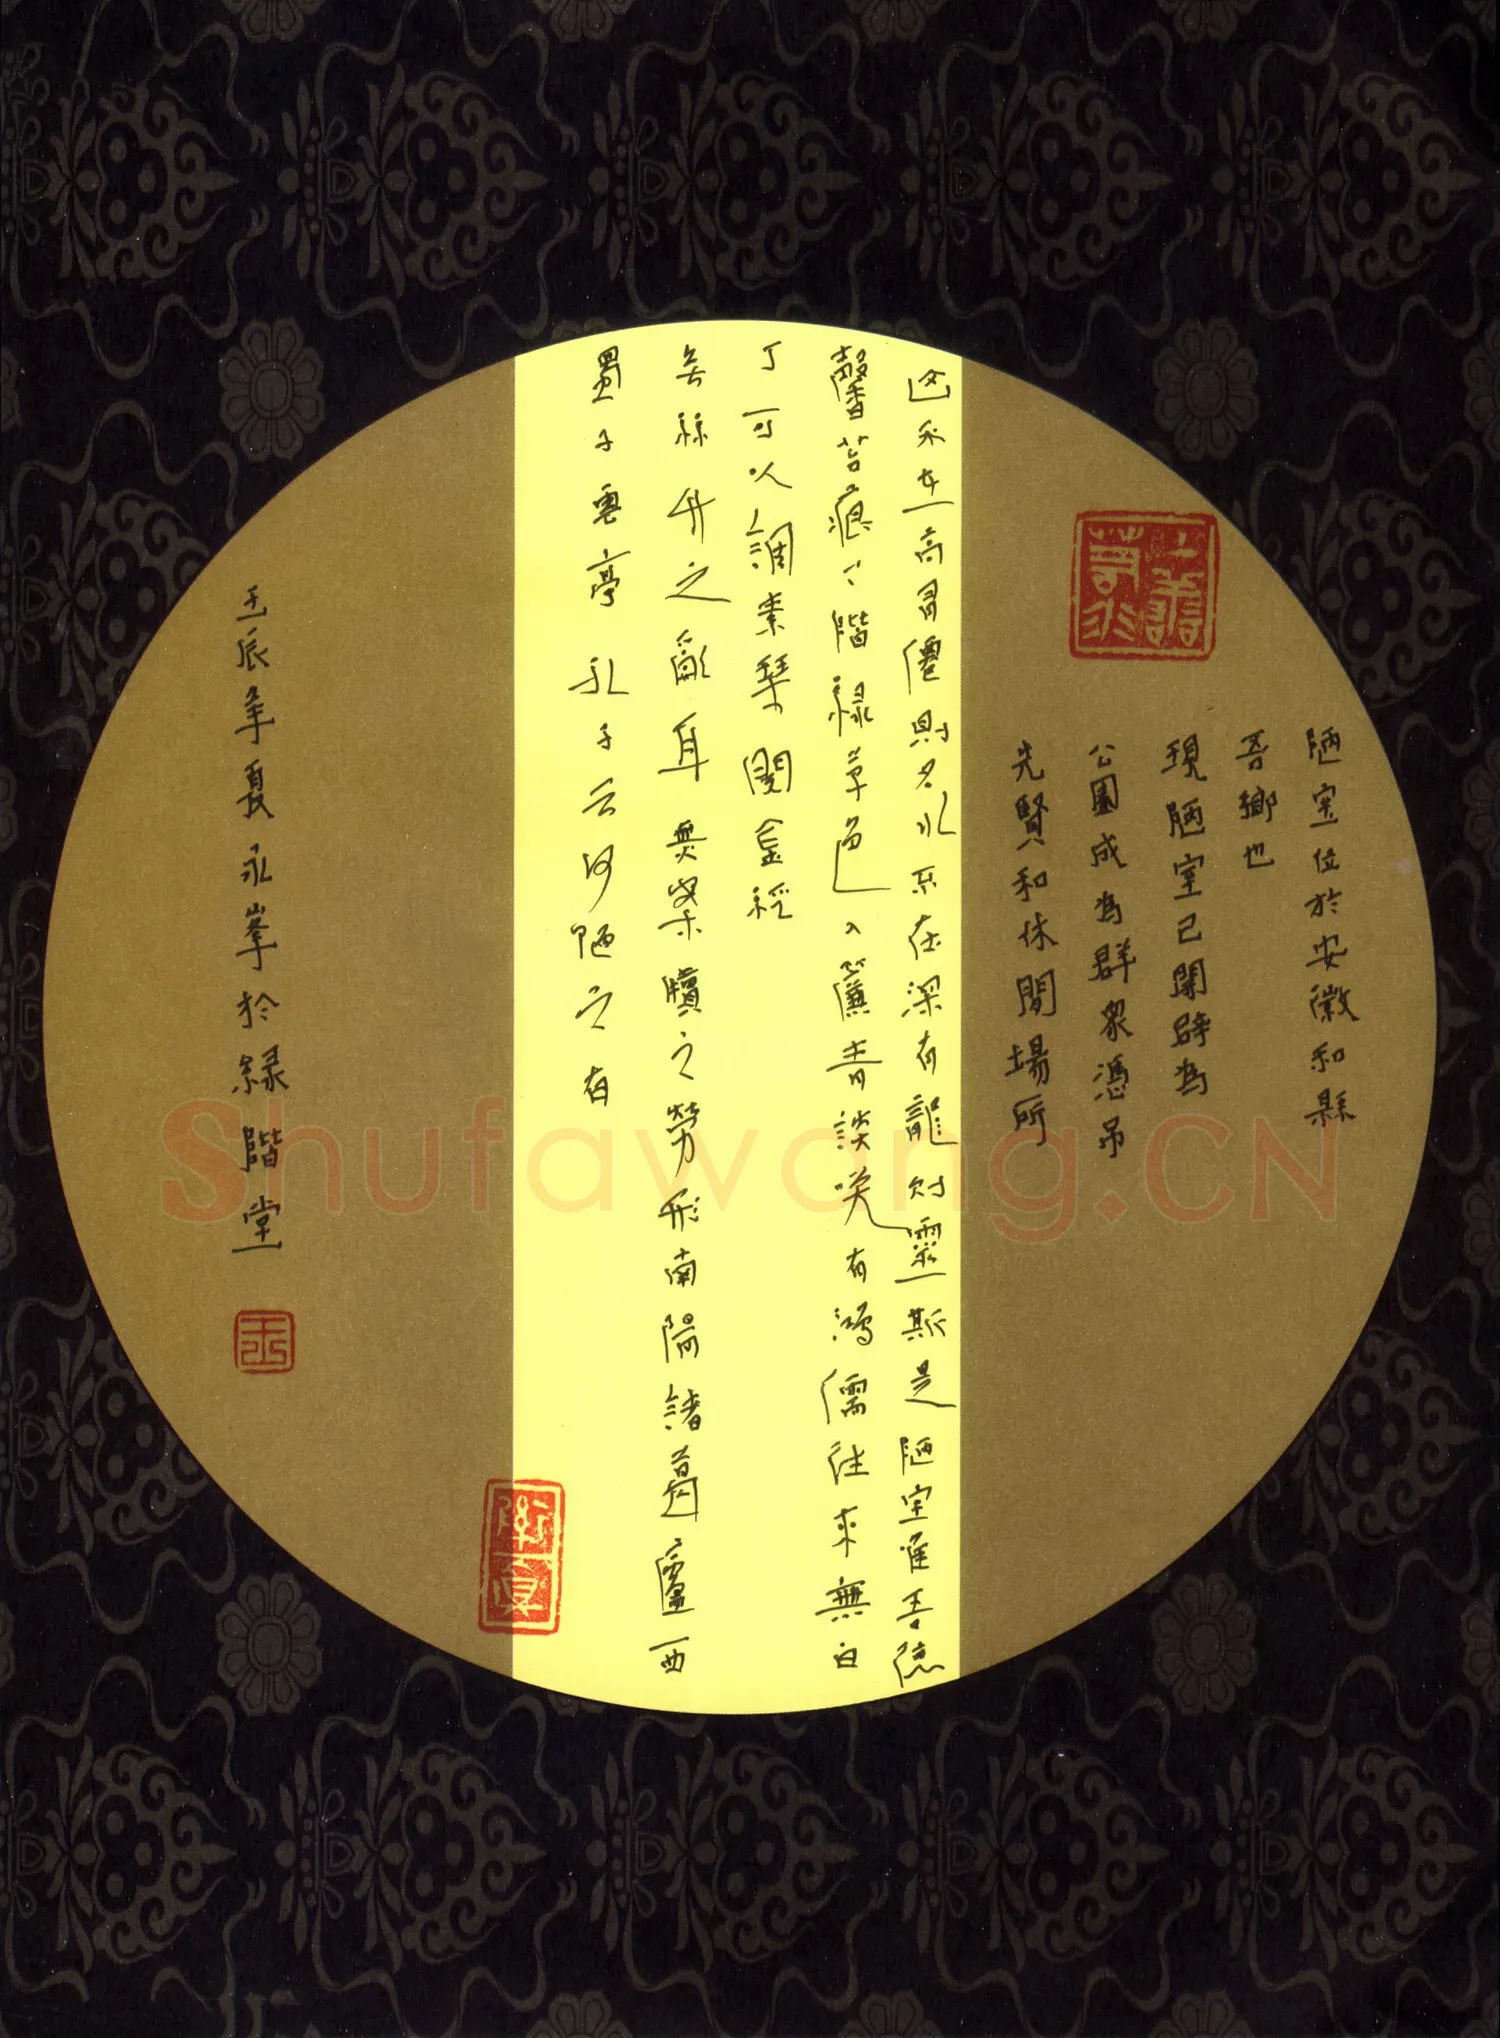 陋室位於安徽和縣
吾鄉也
現陋室已開辟為
公園成為群眾憑吊
先賢和休閒場所
山不在高有僊則名水不在深有龍則靈斯是陋室惟吾德
馨苔痕上階綠草色入簾青談笑有鴻儒往來無白
丁可以調素琴閱金經
無絲竹之亂耳無案牘之勞形南陽諸葛廬西
蜀子雲亭孔子云何陋之有
壬辰年夏永峯於綠階堂
上善若水
Shufawang.CN